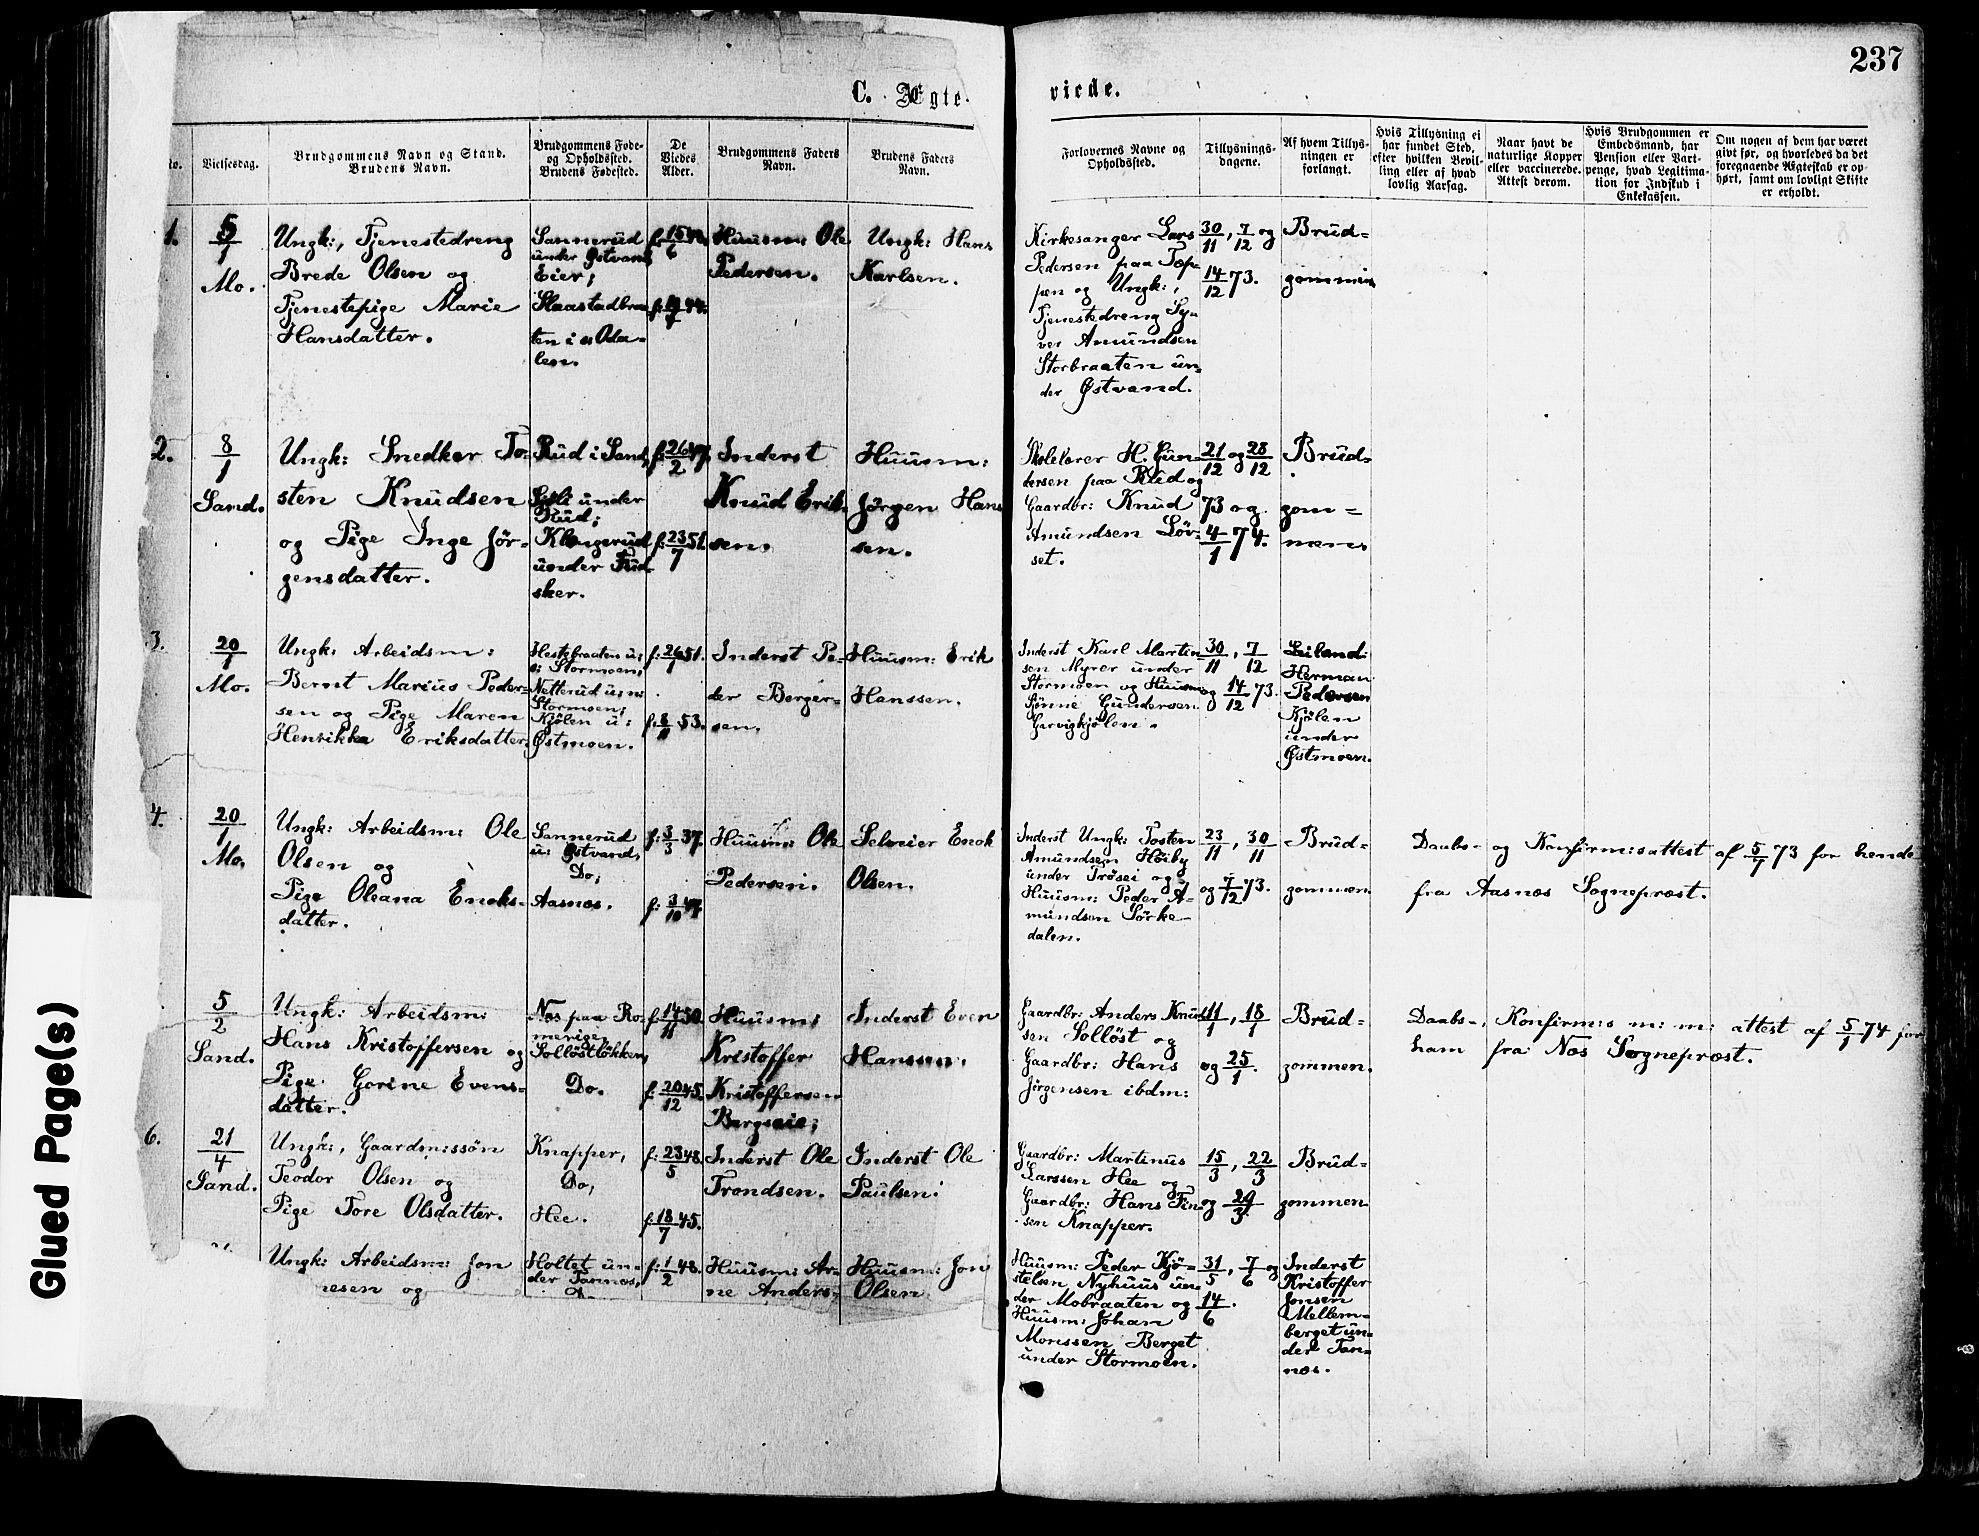 237
C. Ægte-
viede.
No.
Vielsesdag.
Brudgommens Navn og Stand.
Brudens Navn.
Brudgommens Føde-
og Opholdssted.
Brudens Fødested.
De
Viedes
Alder.
Brudgommens Faders
Navn.
Brudens Faders
Navn.
Forlovernes Navne og
Opholdssted.
Tillysnings-
dagene.
Af hvem Tillys-
ningen er
forlangt.
Hvis Tillysning ei
har fundet Sted,
efter hvilken Bevil-
ling eller af hvad
lovlig Aarsag.
Naar havt de
naturlige Kopper
eller vaccinerede.
Attest derom.
Hvis Brudgommen er
Embedsmand, har
Pension eller Vart-
penge, hvad Legitima-
tion for Indskud i
Enkekassen.
Om nogen af dem har været
givt før, og hvorledes da det
foregaaende Ægteskab er op-
hørt, samt om lovligt Skifte
er erholdt.
1.
5/1
Mo.
Ungk:, Tjenestedreng
Brede Olsen og
Tjenestepige Marie
Hansdatter.
Sannerud
under Østvand
Eier;
Slaastadbra-
ten i s Oda-
len.
f: 15/6
Huusm: Ole
Pedersen.
Ungk: Hans
Karlsen.
Kirkesanger Lars
Pedersen paa Tøp-
pen og Ungk:,
Tjenestedreng Sy-
ver Amundsen
Storbraaten un-
der Østvand.
30/11, 7/12 og
14/12 73.
Brud-
gommen
2.
8/1
Sand.
Ungk: Snedker To-
sten Knudsen
og Pige Inge Jør-
gensdatter.
Rud i Sand,
under
Rud;
Klangerud
under
sker.
f: 26/2 47.
f: 23/7 51.
Inderst
Knud Erik-
sen.
Huusm:
Jørgen Hans
sen.
Skolelærer H. Gun-
dersen paa Rud og
Gaardbr: Knud
Amundsen Lør-
set.
21/12 og 28/12
73 og
4/1 74.
Brud-
gom-
men.
3.
20/1
Mo.
Ungk: Arbeidsm:
Bernt Marius Peder-
sen og Pige Maren
Henrikka Eriksdatter.
Hestebraaten u:
s: Stormoen,
Netterud u: n:
Stormoen;
Kjølen u:
Østmoen.
f: 26/1 51.
f: 8/11 53.
Inderst Pe-
der Berger-
sen.
Huusm: Erik
Hanssen.
Inderst Karl Martin
sen Myrer under
Stormoen og Huusm
Sønne Gundersen
Garvigkjølen.
30/11, 7/12
og 14/12 73.
Leilænd:
Herman
Pedersen
Kjølen
under
Østmoen.
4.
20/1
Mo.
Ungk: Arbeidsm: Ole
Olsen og
Pige Oleana Enoks-
datter.
Sannerud
u: Østvand,
Do;
Aasnæs.
f: 3/3 37.
f: 3/10 47.
Huusm: Ole
Pedersen.
Selveier Enok
Olsen.
Inderst Ungk: Tosten
Amundsen Høiby
under Trøsei og
Huusm: Peder A-
mundsen Sørke-
dalen.
23/11, 30/11
og 7/12 73.
Brud-
gommen.
Daabs- og Konfirm:sattest af 5/7 73 for hende
fra Aasnæs Sognepræst.
5/2
Sand.
Ungk: Arbeidsm:
Hans Kristoffersen og
Pige Gorine Evens-
datter.
Næs paa Ro-
merige,
Solløstløkken,
Do.
f: 14/11 50.
f: 20/12 45.
Huusm:
Kristoffer
Kristoffersen
Bergseie;
Inderst Even
Hanssen.
Gaardbr: Anders Knud
sen Solløst og
Gaardbr: Hans
Jørgensen ibdm:
11/1, 18/1
og 25/1
Brud-
gommen.
Daabs-, Konfirm:s m: m: attest af 5/1 74 for
ham fra Næs Sognepræst.
6.
21/4
Sand.
Ungk:, Gaardm:ssøn
Teodor Olsen og
Pige Tore Olsdatter.
Knapper,
Do,
Hee.
f: 23/5 48.
f: 18/7 45.
Inderst Ole
Trondsen.
Inderst Ole
Paulsen.
Gaardbr: Martinus
Larssen Hee og
Gaardbr: Hans Fin-
sen Knapper.
15/3, 22/3
og 29/3.
Brud-
gommen
Ungk: Arbeidsm: Jon
nesen og
Holtet un-
der Tannæs,
f: 1/2 48.
Huusm: Ar-
ne Anders-
Huusm: Jon
Olsen
Huusm: Peder Kjø-
stelsen Nyhuus un
der Mobraaten og
Huusm: Johan
Monssen Berget
under Stormoen.
31/5, 7/6 og
14/6.
Inderst
Kristoffer
Jonsen
Mellem-
berget un-
der Tan-
næs.
Glued Page(s)